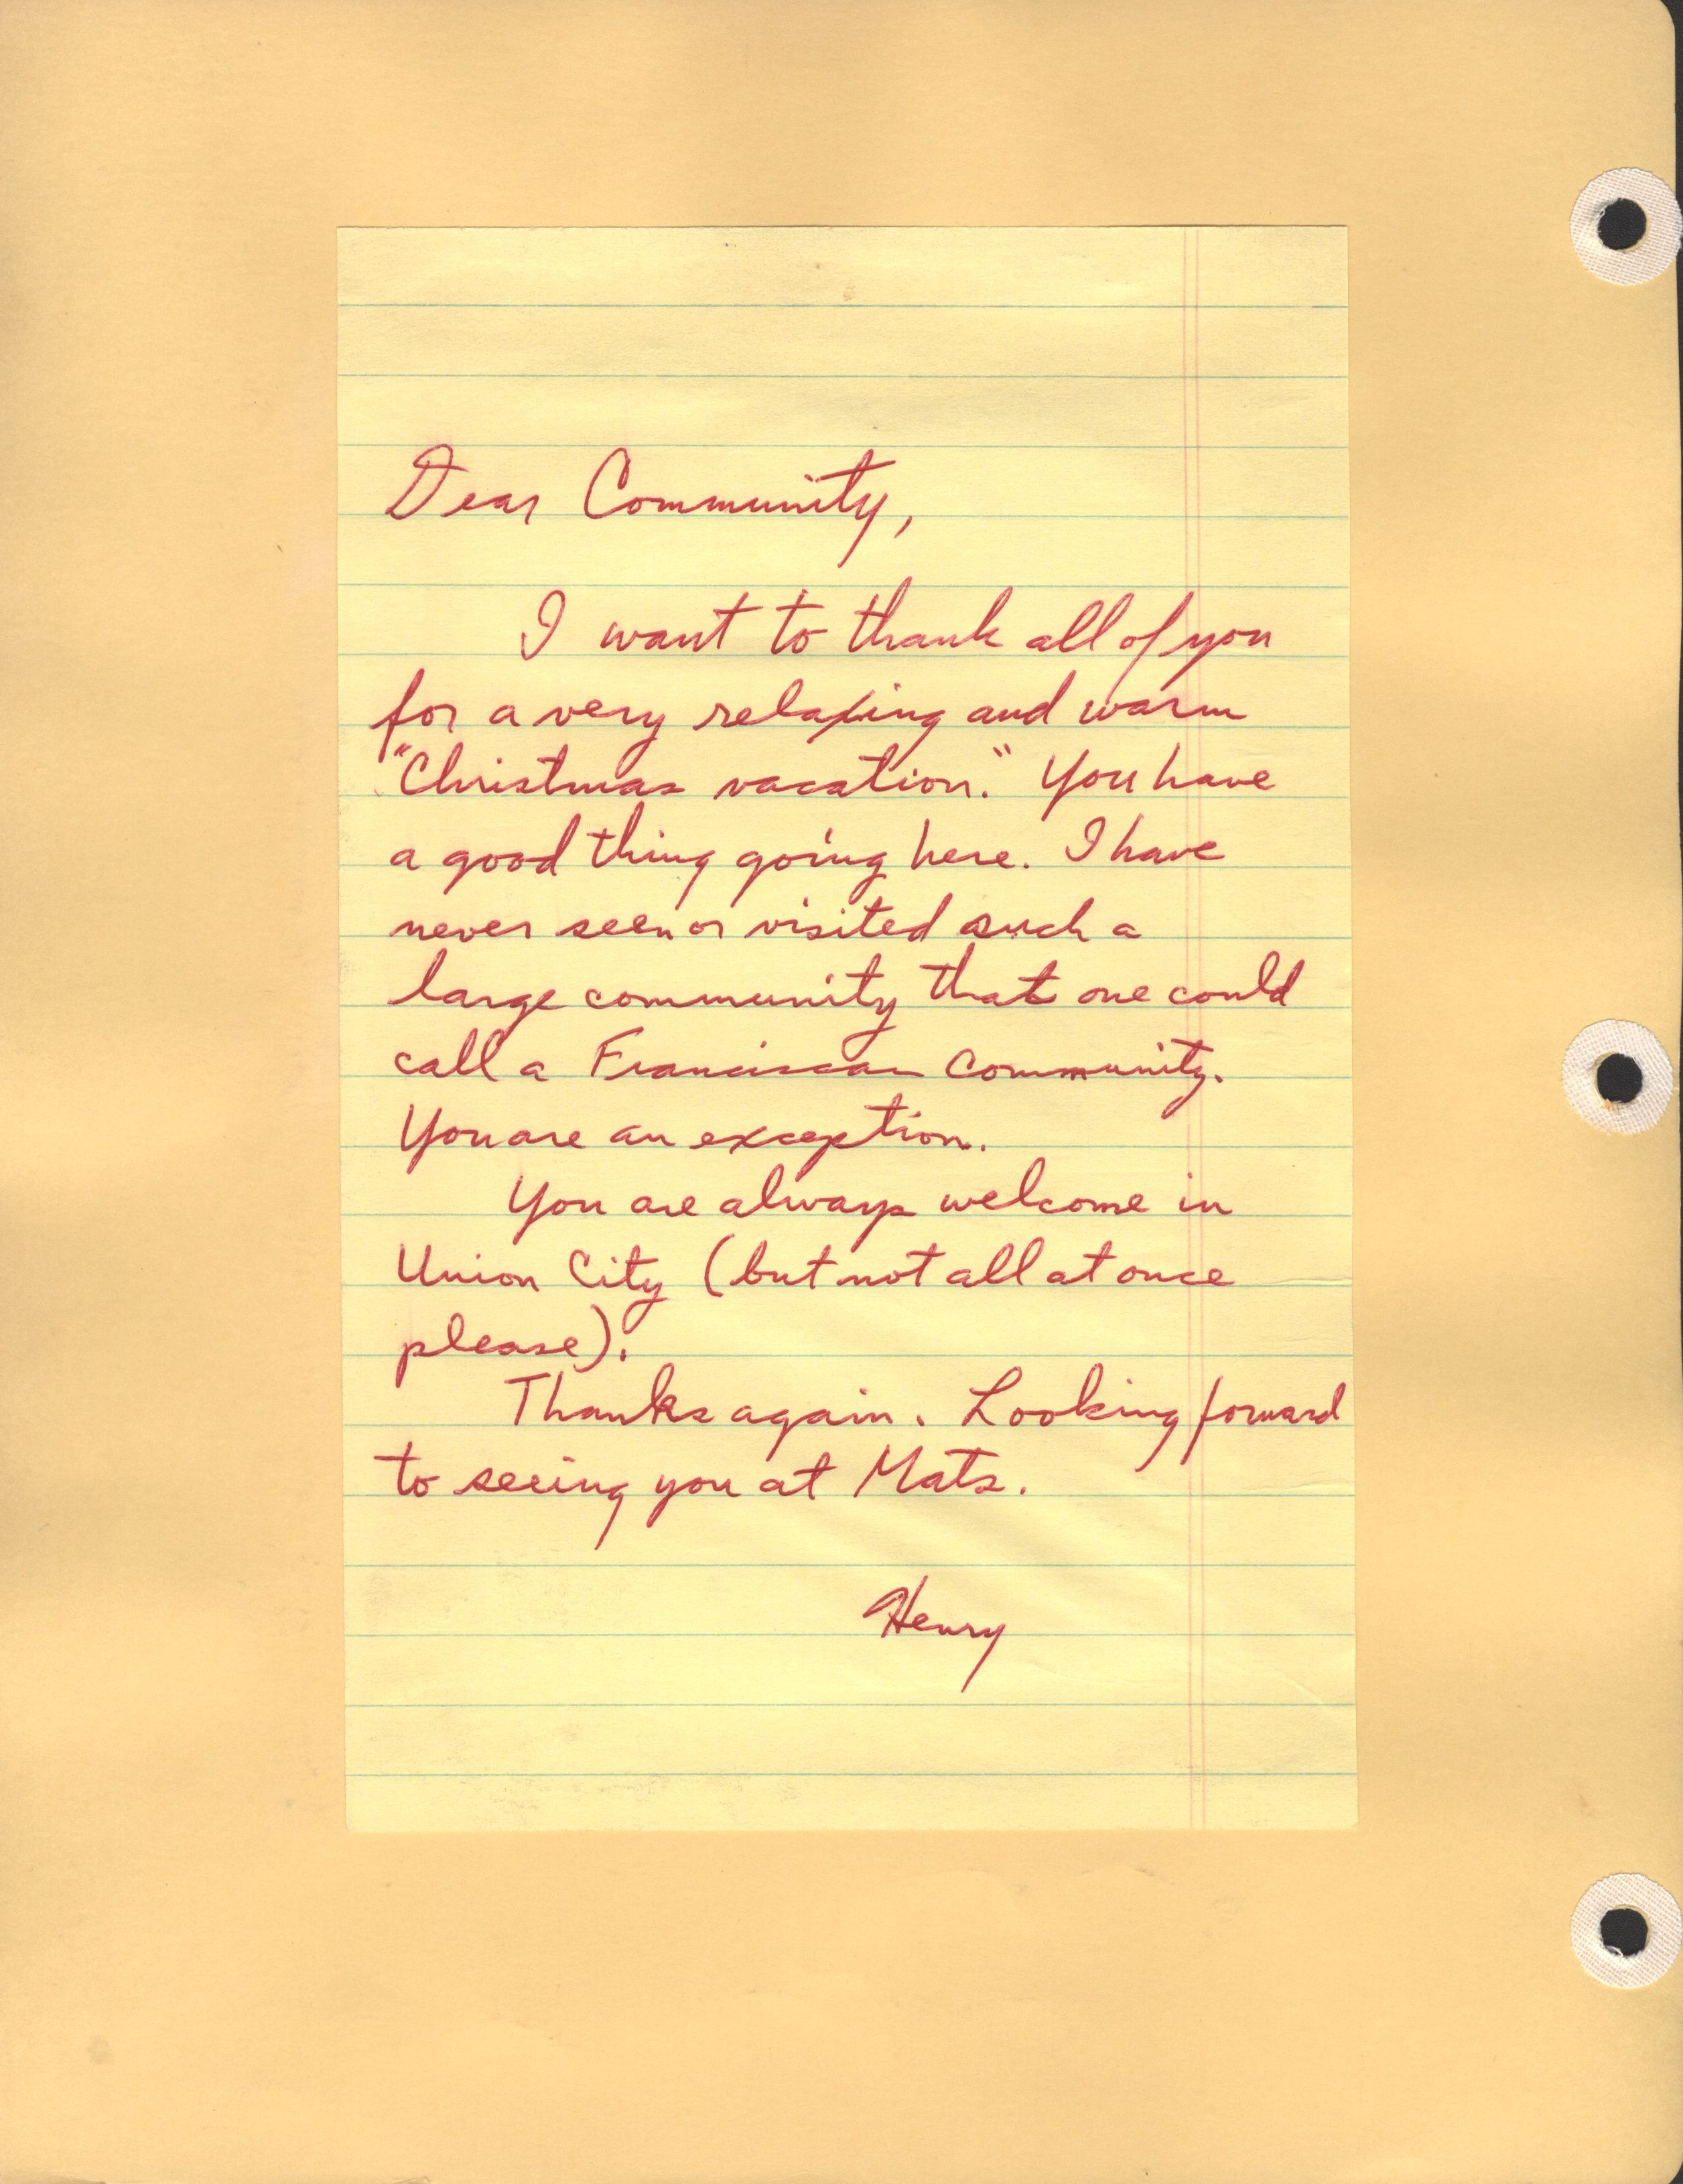 Dear Community,
I want to thank all of you
for a very relaxing and warm
"Christmas vacation." You have
a good thing going here. I have
never seen or visited such a
large community that one could
call a Franciscan Community.
You are an exception.
You are always welcome in
Union City (but not all at once
please).
Thanks again. Looking forward
to seeing you at Mats.
Henry